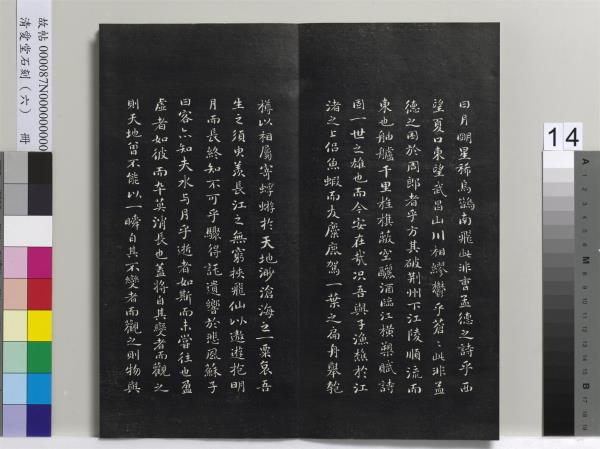 曰月明星稀烏鵲南飛此非曹孟德之詩乎西
望夏口東望武昌山川相繆鬱乎蒼蒼此非孟
德之困於周郎者乎方其破荊州下江陵順流而
東也舳艫千里旌旗蔽空釃酒臨江橫槊賦詩
固一世之雄也而今安在哉況吾與子漁樵於江
渚之上侶魚蝦而友麋鹿駕一葉之扁舟舉匏
樽以相屬寄蜉蝣於天地渺滄海之一粟哀吾
生之須臾羨長江之無窮挾飛仙以遨遊抱明
月而長終知不可乎驟得託遺響於悲風蘇子
曰客亦知夫水與月乎逝者如斯而未嘗往也盈
虛者如彼而卒莫消長也蓋將自其變者而觀之
則天地曾不能以一瞬自其不變者而觀之則物與
故帖 000087N000000000
清愛堂石刻（六） 冊
14
A
1
2
3
4
5
6
M
8
9
10
11
12
13
14
15
B
17
18
19